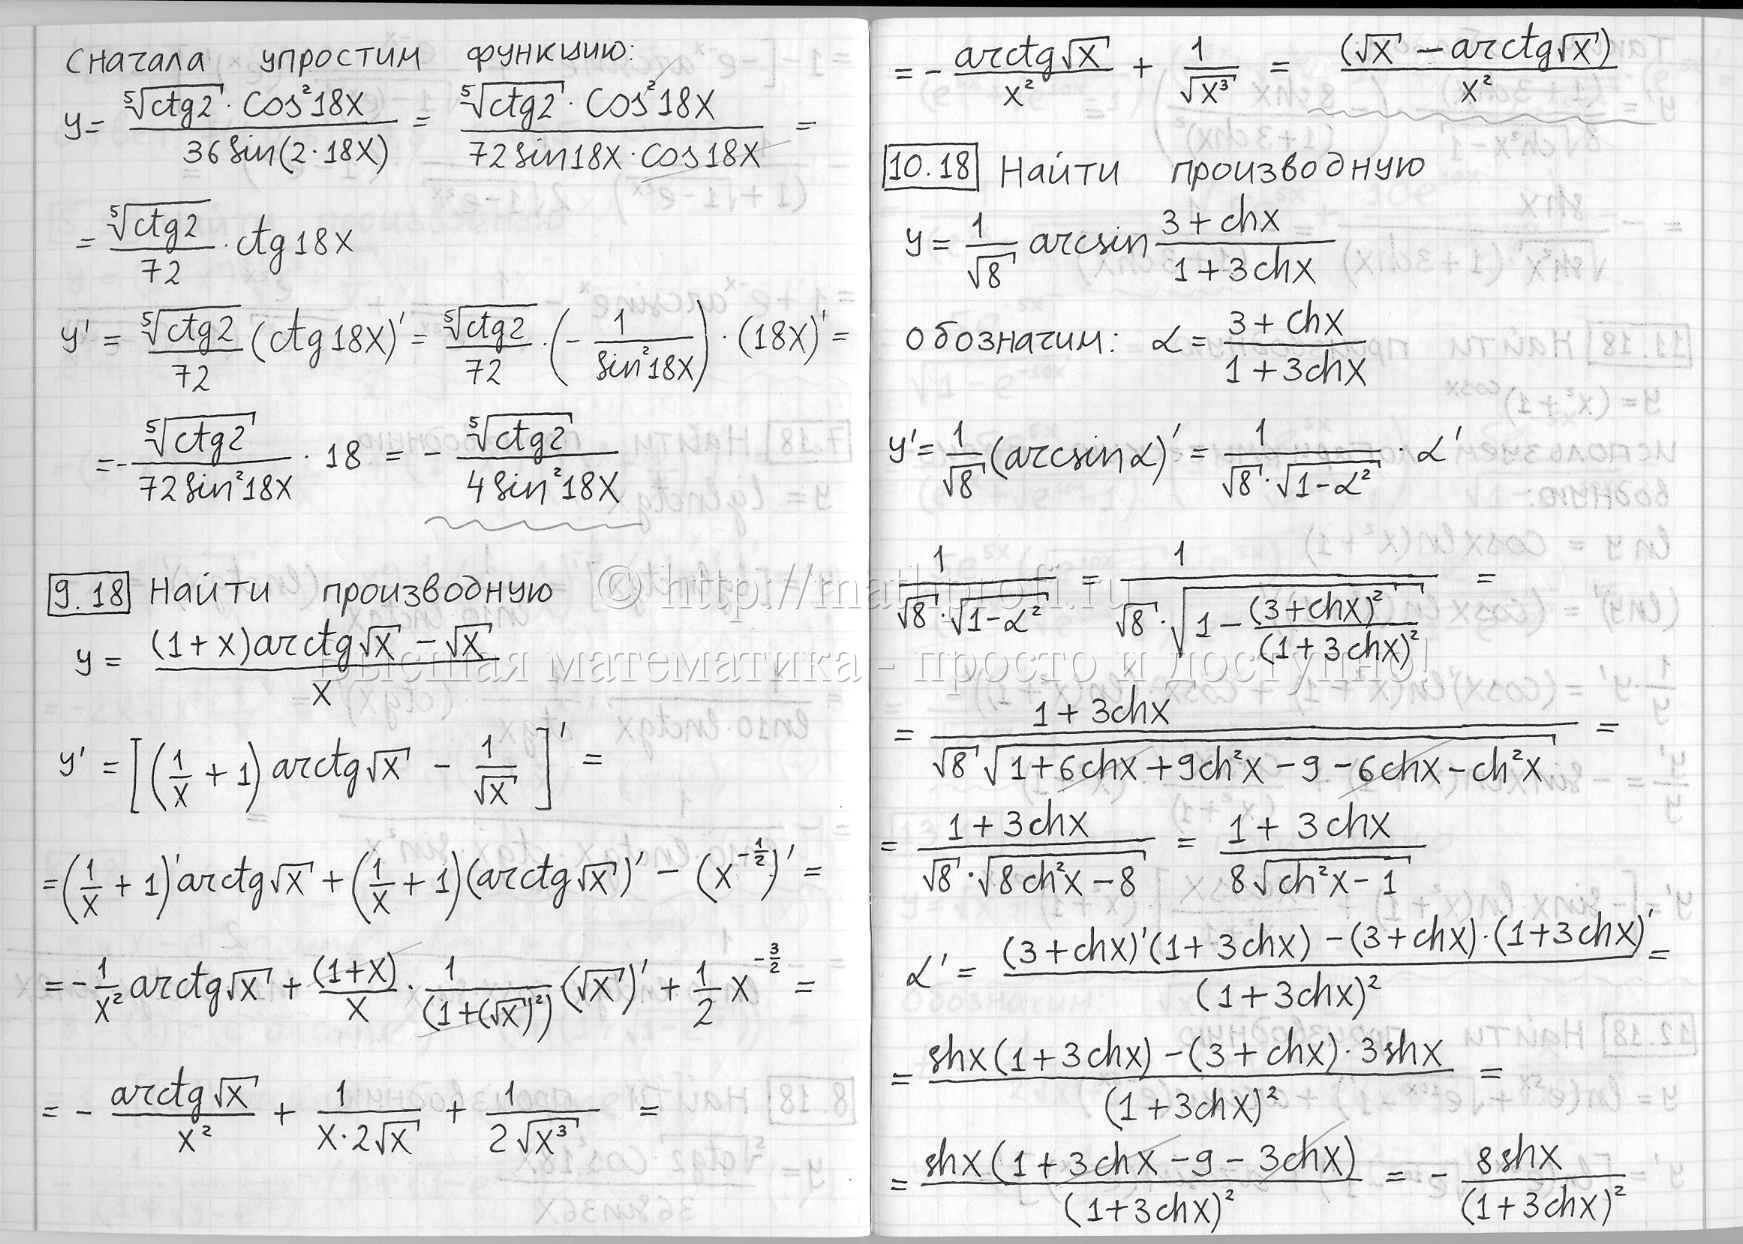 сначала упростим функцию:
y = ⁵√(ctg2) · cos²18x / 36sin(2·18x) = ⁵√(ctg2) · cos²18x / 72sin18x·cos18x =
= ⁵√(ctg2) / 72 · ctg18x
y' = ⁵√(ctg2) / 72 (ctg18x)' = ⁵√(ctg2) / 72 · (- 1 / sin²18x) · (18x)' =
= - ⁵√(ctg2) / 72sin²18x · 18 = - ⁵√(ctg2) / 4sin²18x
9.18 Найти производную
y = ((1+x)arctg√x - √x) / x
y' = [(1/x + 1) arctg√x - 1/√x]' =
= (1/x + 1)' arctg√x + (1/x + 1)(arctg√x)' - (x^(-1/2))' =
= - 1/x² arctg√x + (1+x)/x · 1/(1+(√x)²) · (√x)' + 1/2 x^(-3/2) =
= - arctg√x / x² + 1 / x·2√x + 1 / 2√x³ =
= - arctg√x / x² + 1 / √x³ = (√x - arctg√x) / x²
10.18 Найти производную
y = 1/√8 arcsin (3+chx)/(1+3chx)
обозначим: α = (3+chx)/(1+3chx)
y' = 1/√8 (arcsinα)' = 1 / √8·√(1-α²) · α'
1 / √8·√(1-α²) = 1 / √8·√(1 - (3+chx)²/(1+3chx)²) =
= (1+3chx) / √8 √(1+6chx+9ch²x-9-6chx-ch²x) =
= (1+3chx) / √8·√(8ch²x-8) = (1+3chx) / 8√(ch²x-1)
α' = ((3+chx)'(1+3chx) - (3+chx)·(1+3chx)') / (1+3chx)² =
= (shx(1+3chx) - (3+chx)·3shx) / (1+3chx)² =
= shx(1+3chx-9-3chx) / (1+3chx)² = - 8shx / (1+3chx)²
© http://mathprofi.ru
Высшая математика - просто и доступно!